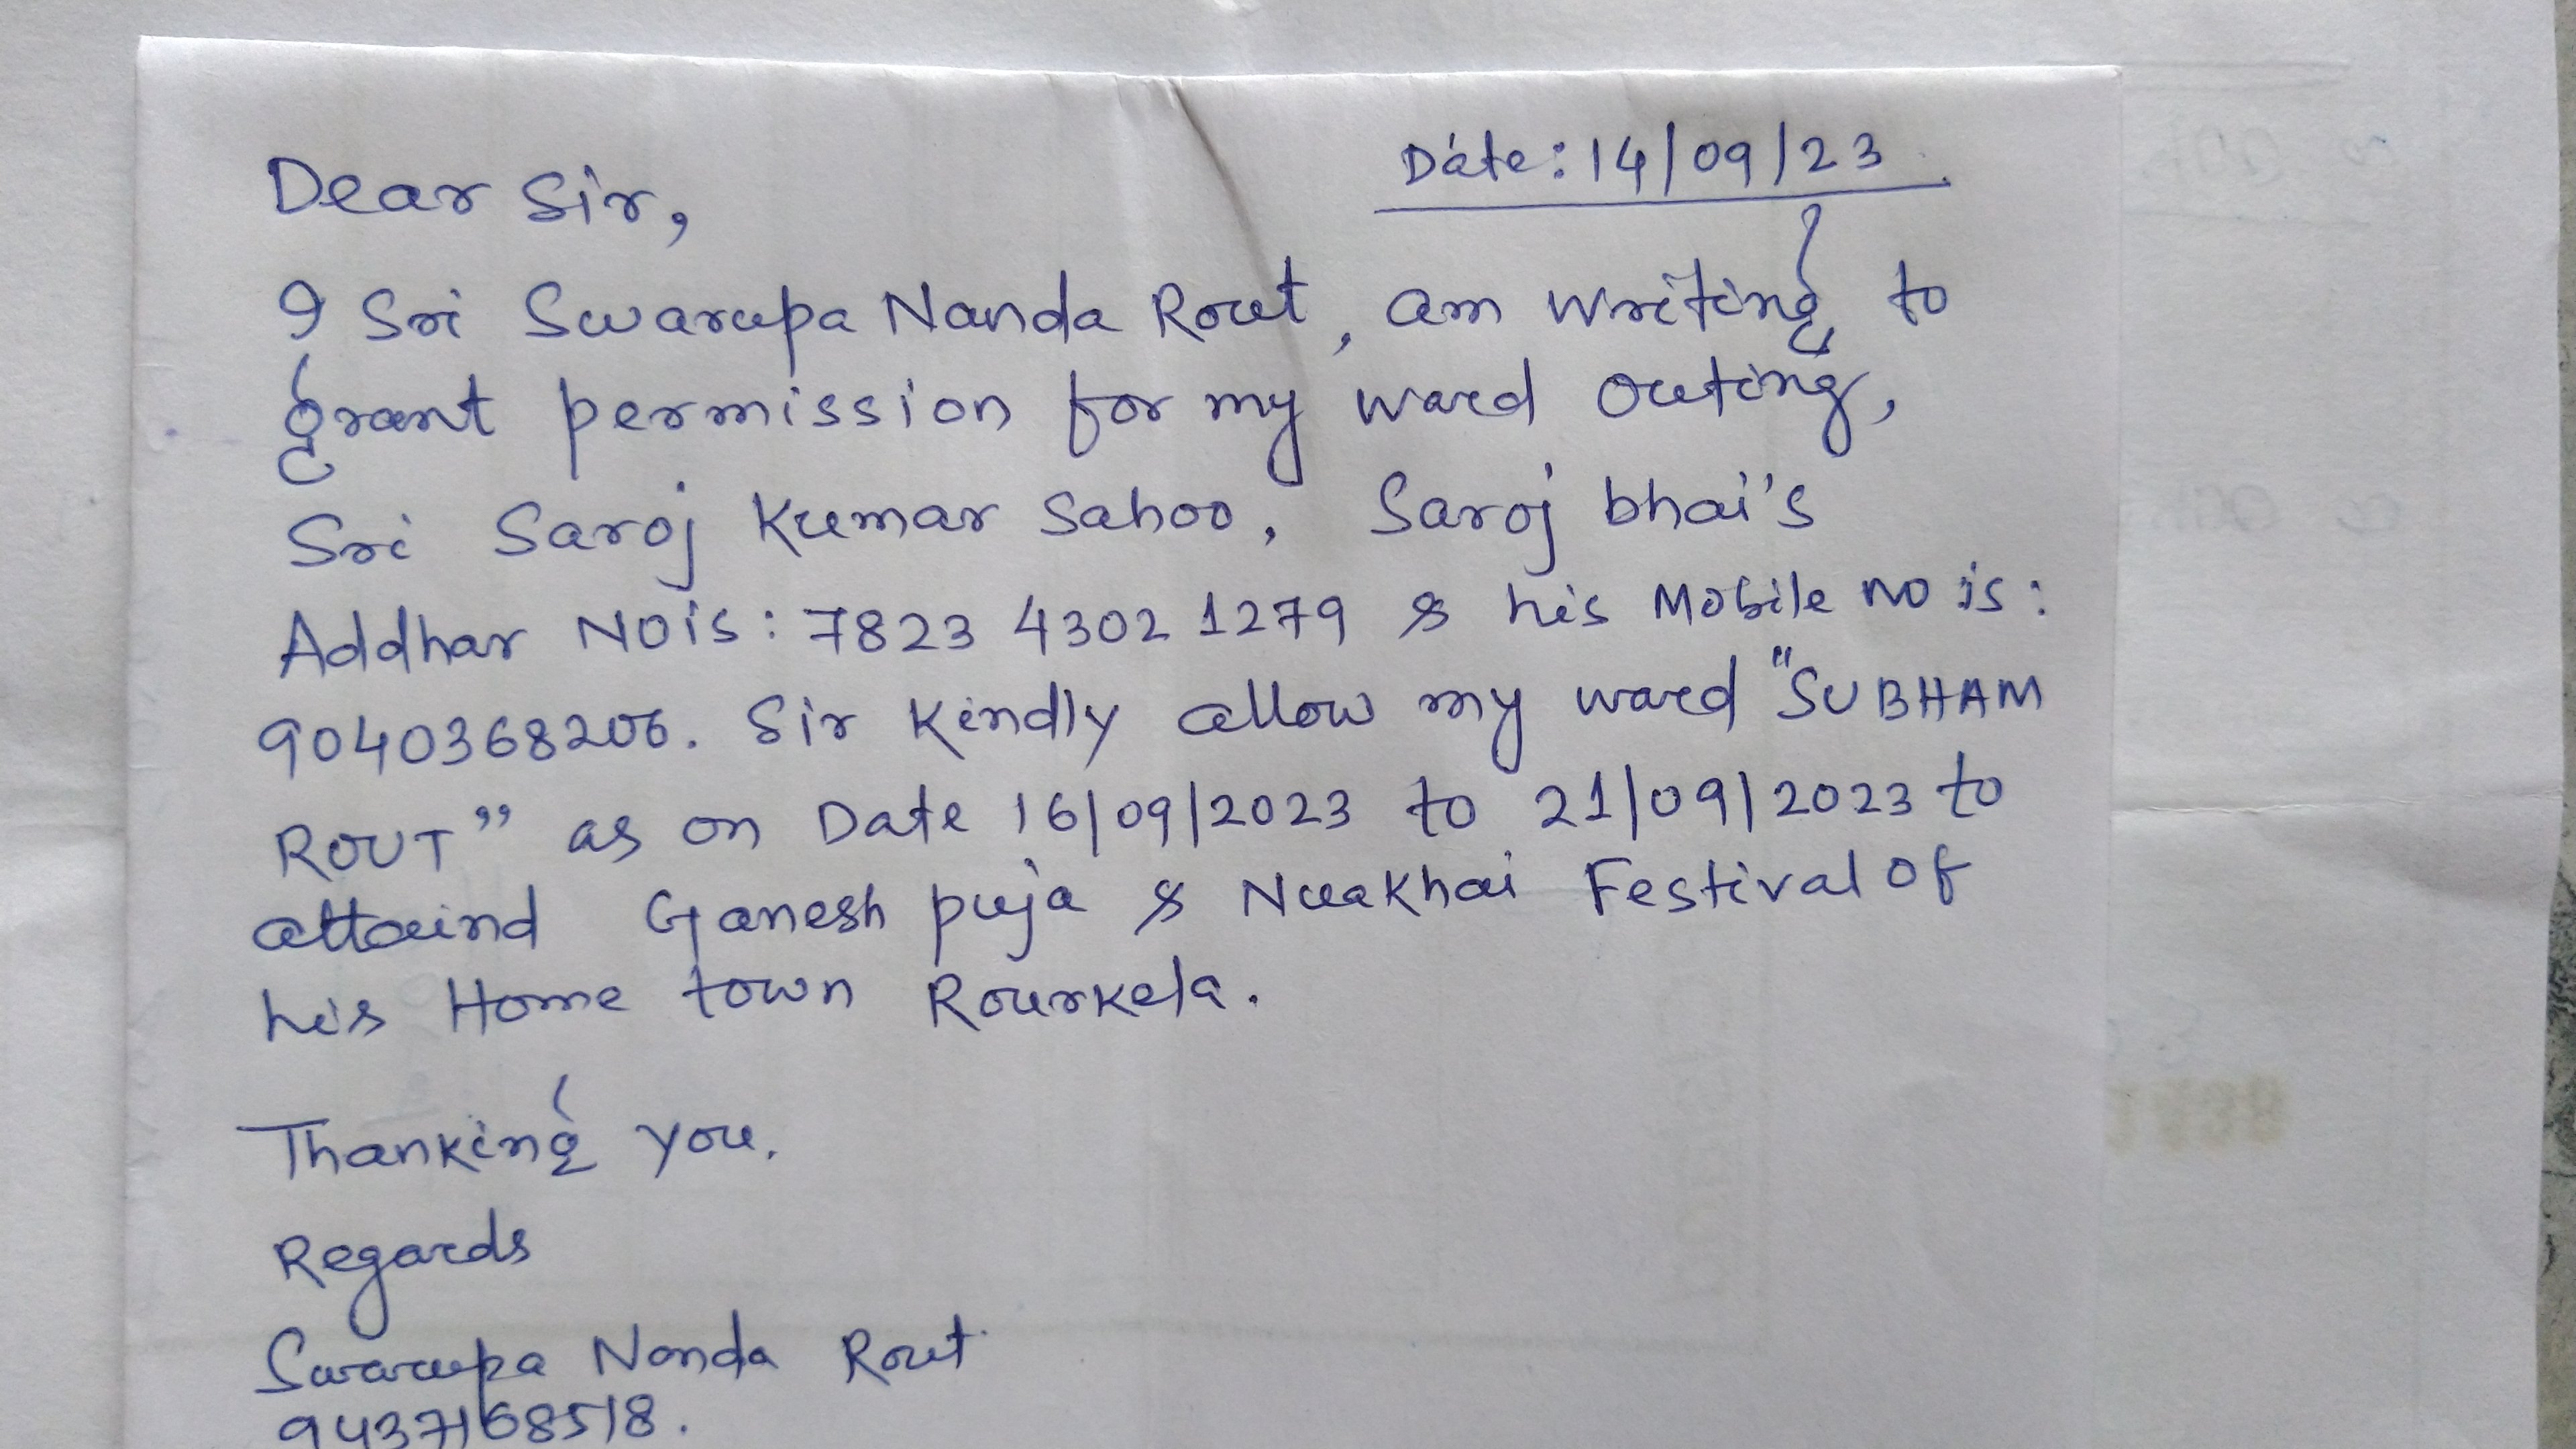 Date: 14/09/23.
Dear Sir,
I Sri Swarupa Nanda Rout, am writing to
grant permission for my ward outing,
Sri Saroj Kumar Sahoo, Saroj bhai's
Addhar NO is: 7823 4302 1279 & his Mobile no is:
9040368206. Sir kindly allow my ward "SUBHAM
ROUT" as on Date 16/09/2023 to 21/09/2023 to
attaind Ganesh puja & Nuakhai Festival of
his Home town Rourkela.
Thanking you.
Regards
Swarupa Nanda Rout
9437168518.